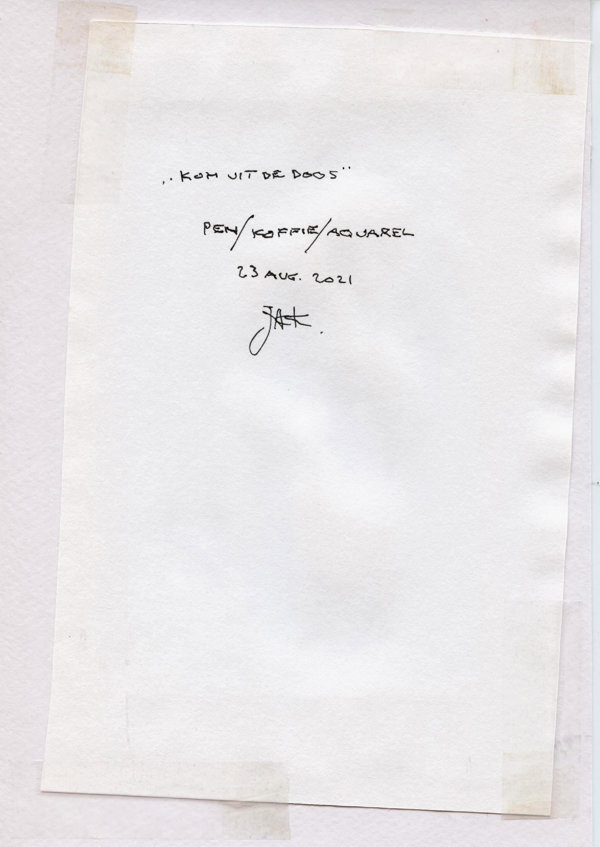 „KOM UIT DE DOOS"
PEN/KOFFIE/AQUAREL
23 AUG. 2021
JAK.